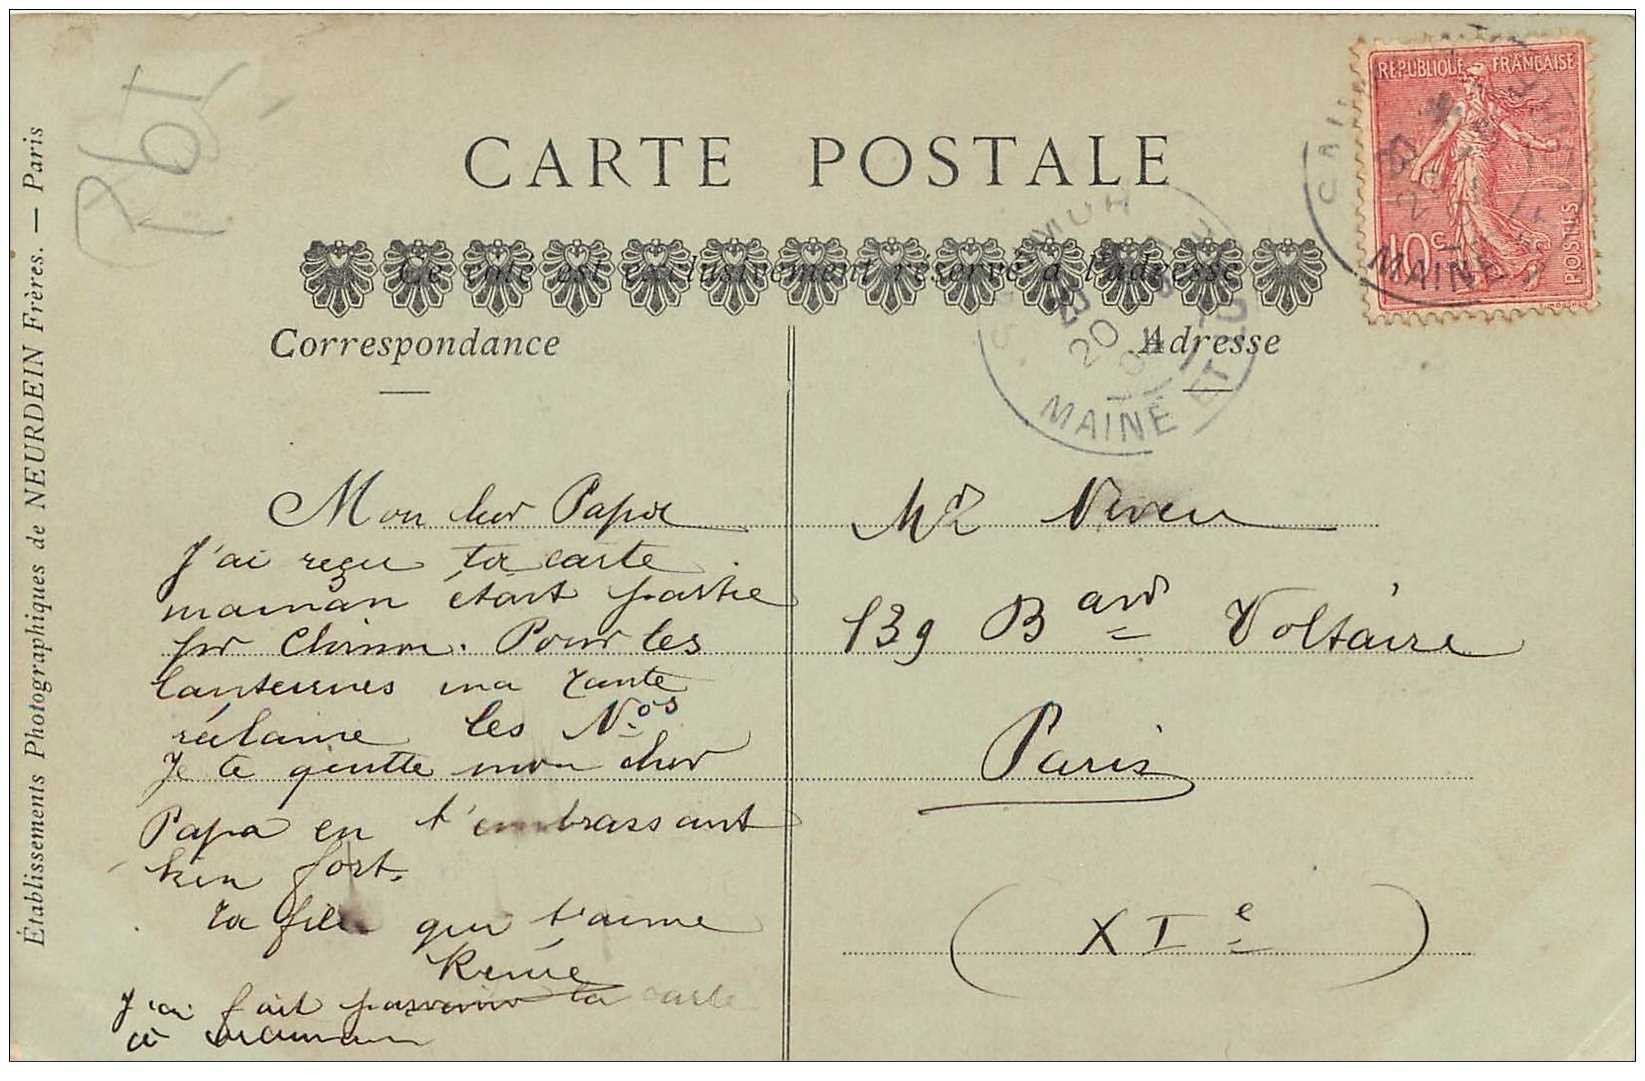 CARTE POSTALE
Ce côté est exclusivement réservé à l'adresse
Correspondance
Adresse
Établissements Photographiques de NEURDEIN Frères. — Paris
REPUBLIQUE FRANÇAISE
10c
POSTES
MAINE
MAINE ET
20
Mon cher Papa
J'ai reçu ta carte
maman était partie
pr Chinon. Pour les
lanternes ma Tante
réclame les Nos
Je te quitte mon cher
Papa en t'embrassant
bien fort.
Ta fille qui t'aime
Renée
J'ai fait parvenir ta carte
à maman
Mr Neveu
139 Bard Voltaire
Paris
(XIe)